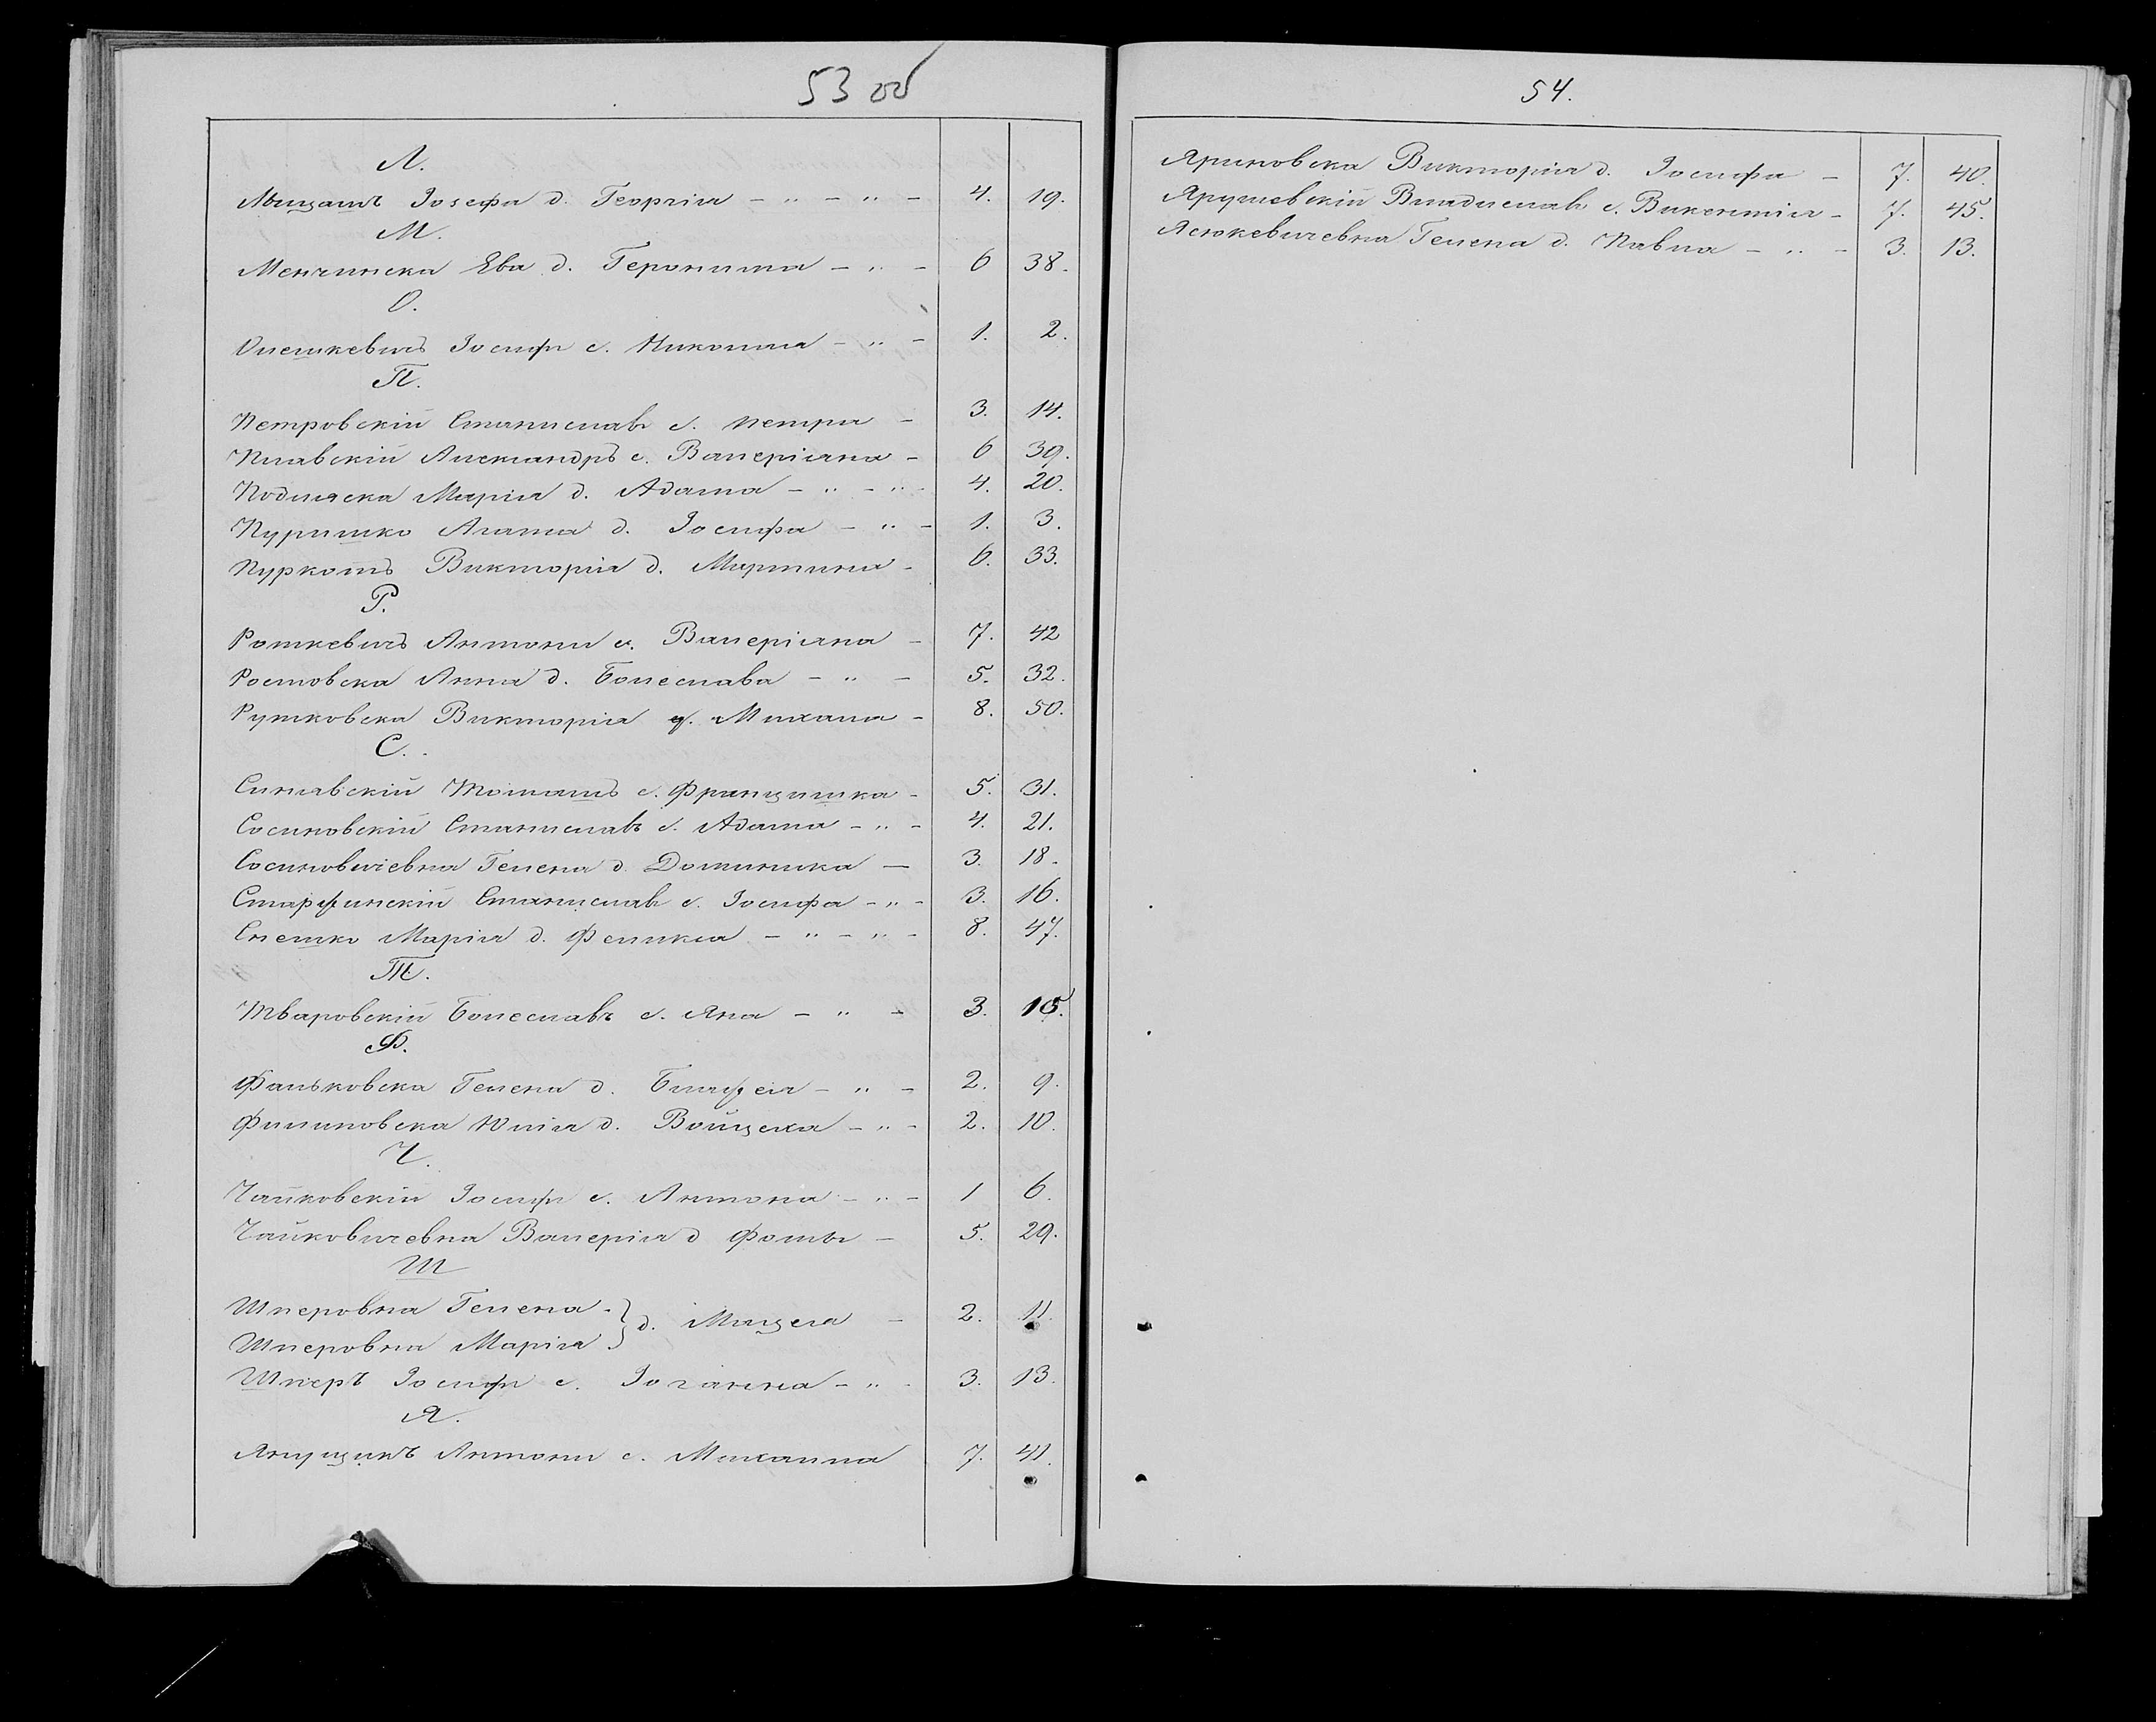 53 об
Л.
Лыщашъ Іозефа д. Георгія – „ – „ – 4. 19.
М.
Менчинска Ева д. Геронима – „ – 6 38.
О.
Олешкевичъ Іосифъ с. Николая – „ – 1. 2.
П.
Петровскій Станиславъ с. Петра – 3. 14.
Плавскій Александръ с. Валеріана – 6 39.
Подляска Марія д. Адама – „ – „ – 4. 20.
Пуришко Агата д. Іосифа – „ – 1. 3.
Пуркотъ Викторія д. Мартина – 6. 33.
Р.
Роткевичъ Антони с. Валеріана – 7. 42
Ростовска Анна д. Болеслава – „ – 5. 32.
Рутковска Викторія д. Михала – 8. 50.
С.
Синявскій Томашъ с. Францишка – 5. 31.
Сосиновскій Станиславъ с. Адама – „ – 4. 21.
Сосиновичевна Гелена д. Доминика — 3. 18.
Станиславъ с. Іосифа – „ – 3. 16.
Спешко Марія д. Феликса – „ – „ – 8. 47.
Т.
Тваровскій Болеславъ с. Яна – „ – 3. 15.
Ф.
Фальковска Гелена д. – „ – 2. 9.
Филиповска Юлія д. Войцеха – „ – 2. 10.
Ч.
Чайковскій Іосифъ с. Антона – „ – 1 6.
Чайковичевна Валерія д Фомы – 5. 29.
Ш
Шперовна Гелена } д. – 2. 11.
Шперовна Марія }
Шперъ Іосифъ с. Іоганна – „ – 3. 13.
Я.
Янущикъ Антони с. Михаила 7. 41.
54.
Яриновска Викторія д. Іосифа – 7. 40.
Ярушевскій Владиславъ с. Викентія – 7. 45.
Ясюкевичевна Гелена д. Павла – „ – 3. 13.